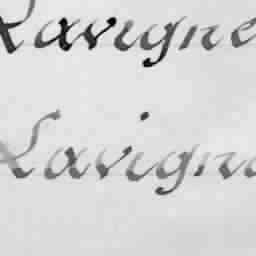 Ravigne
Lavigne